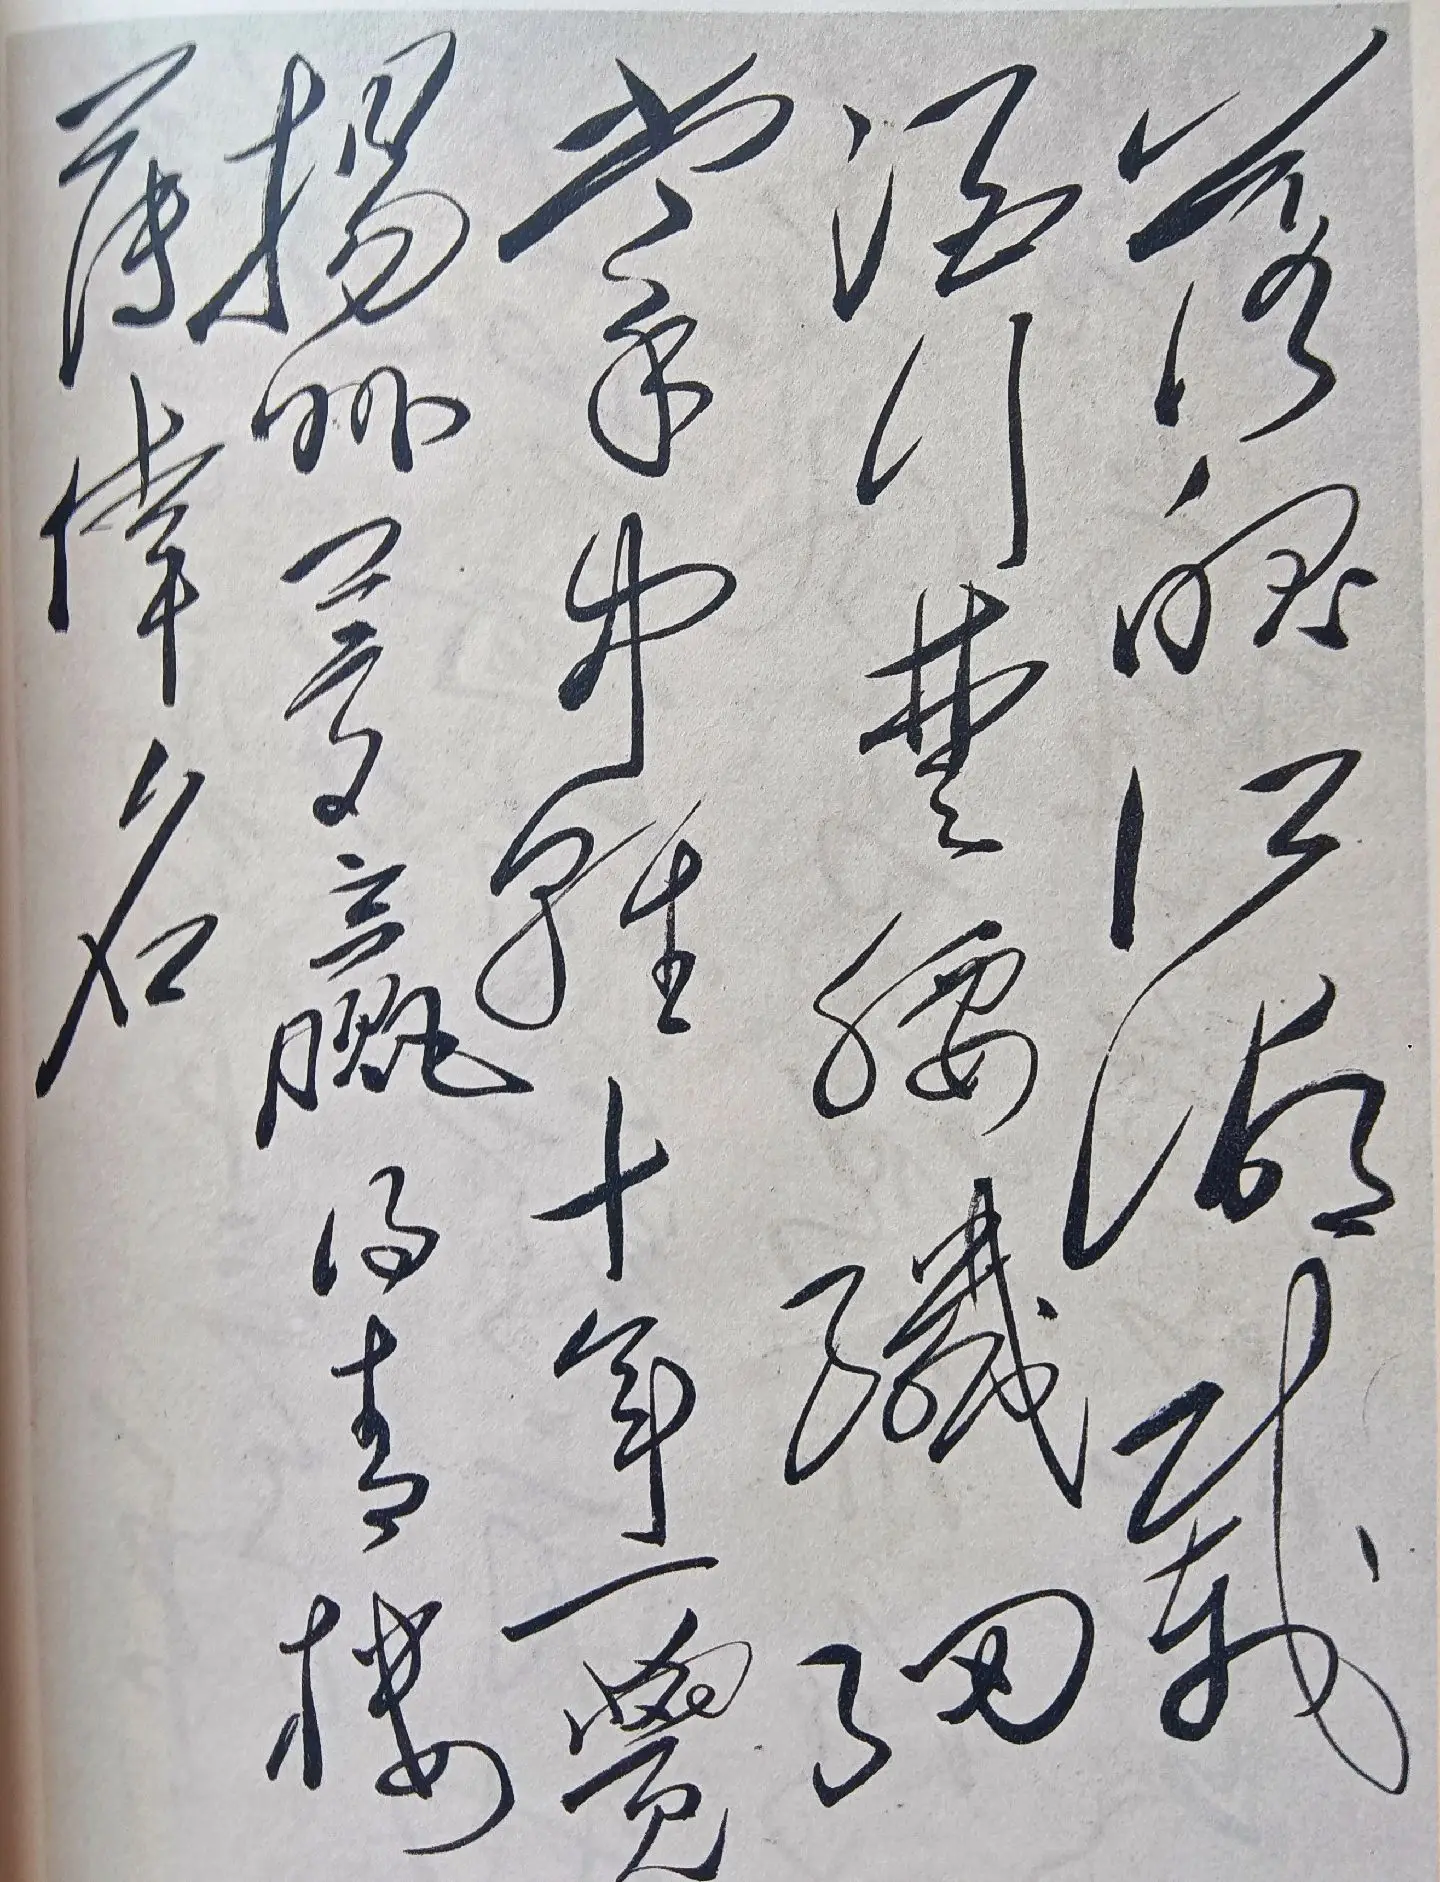 落魄江湖載
酒行楚腰纖細
掌中輕十年一覺
揚州夢贏得青樓
薄倖名